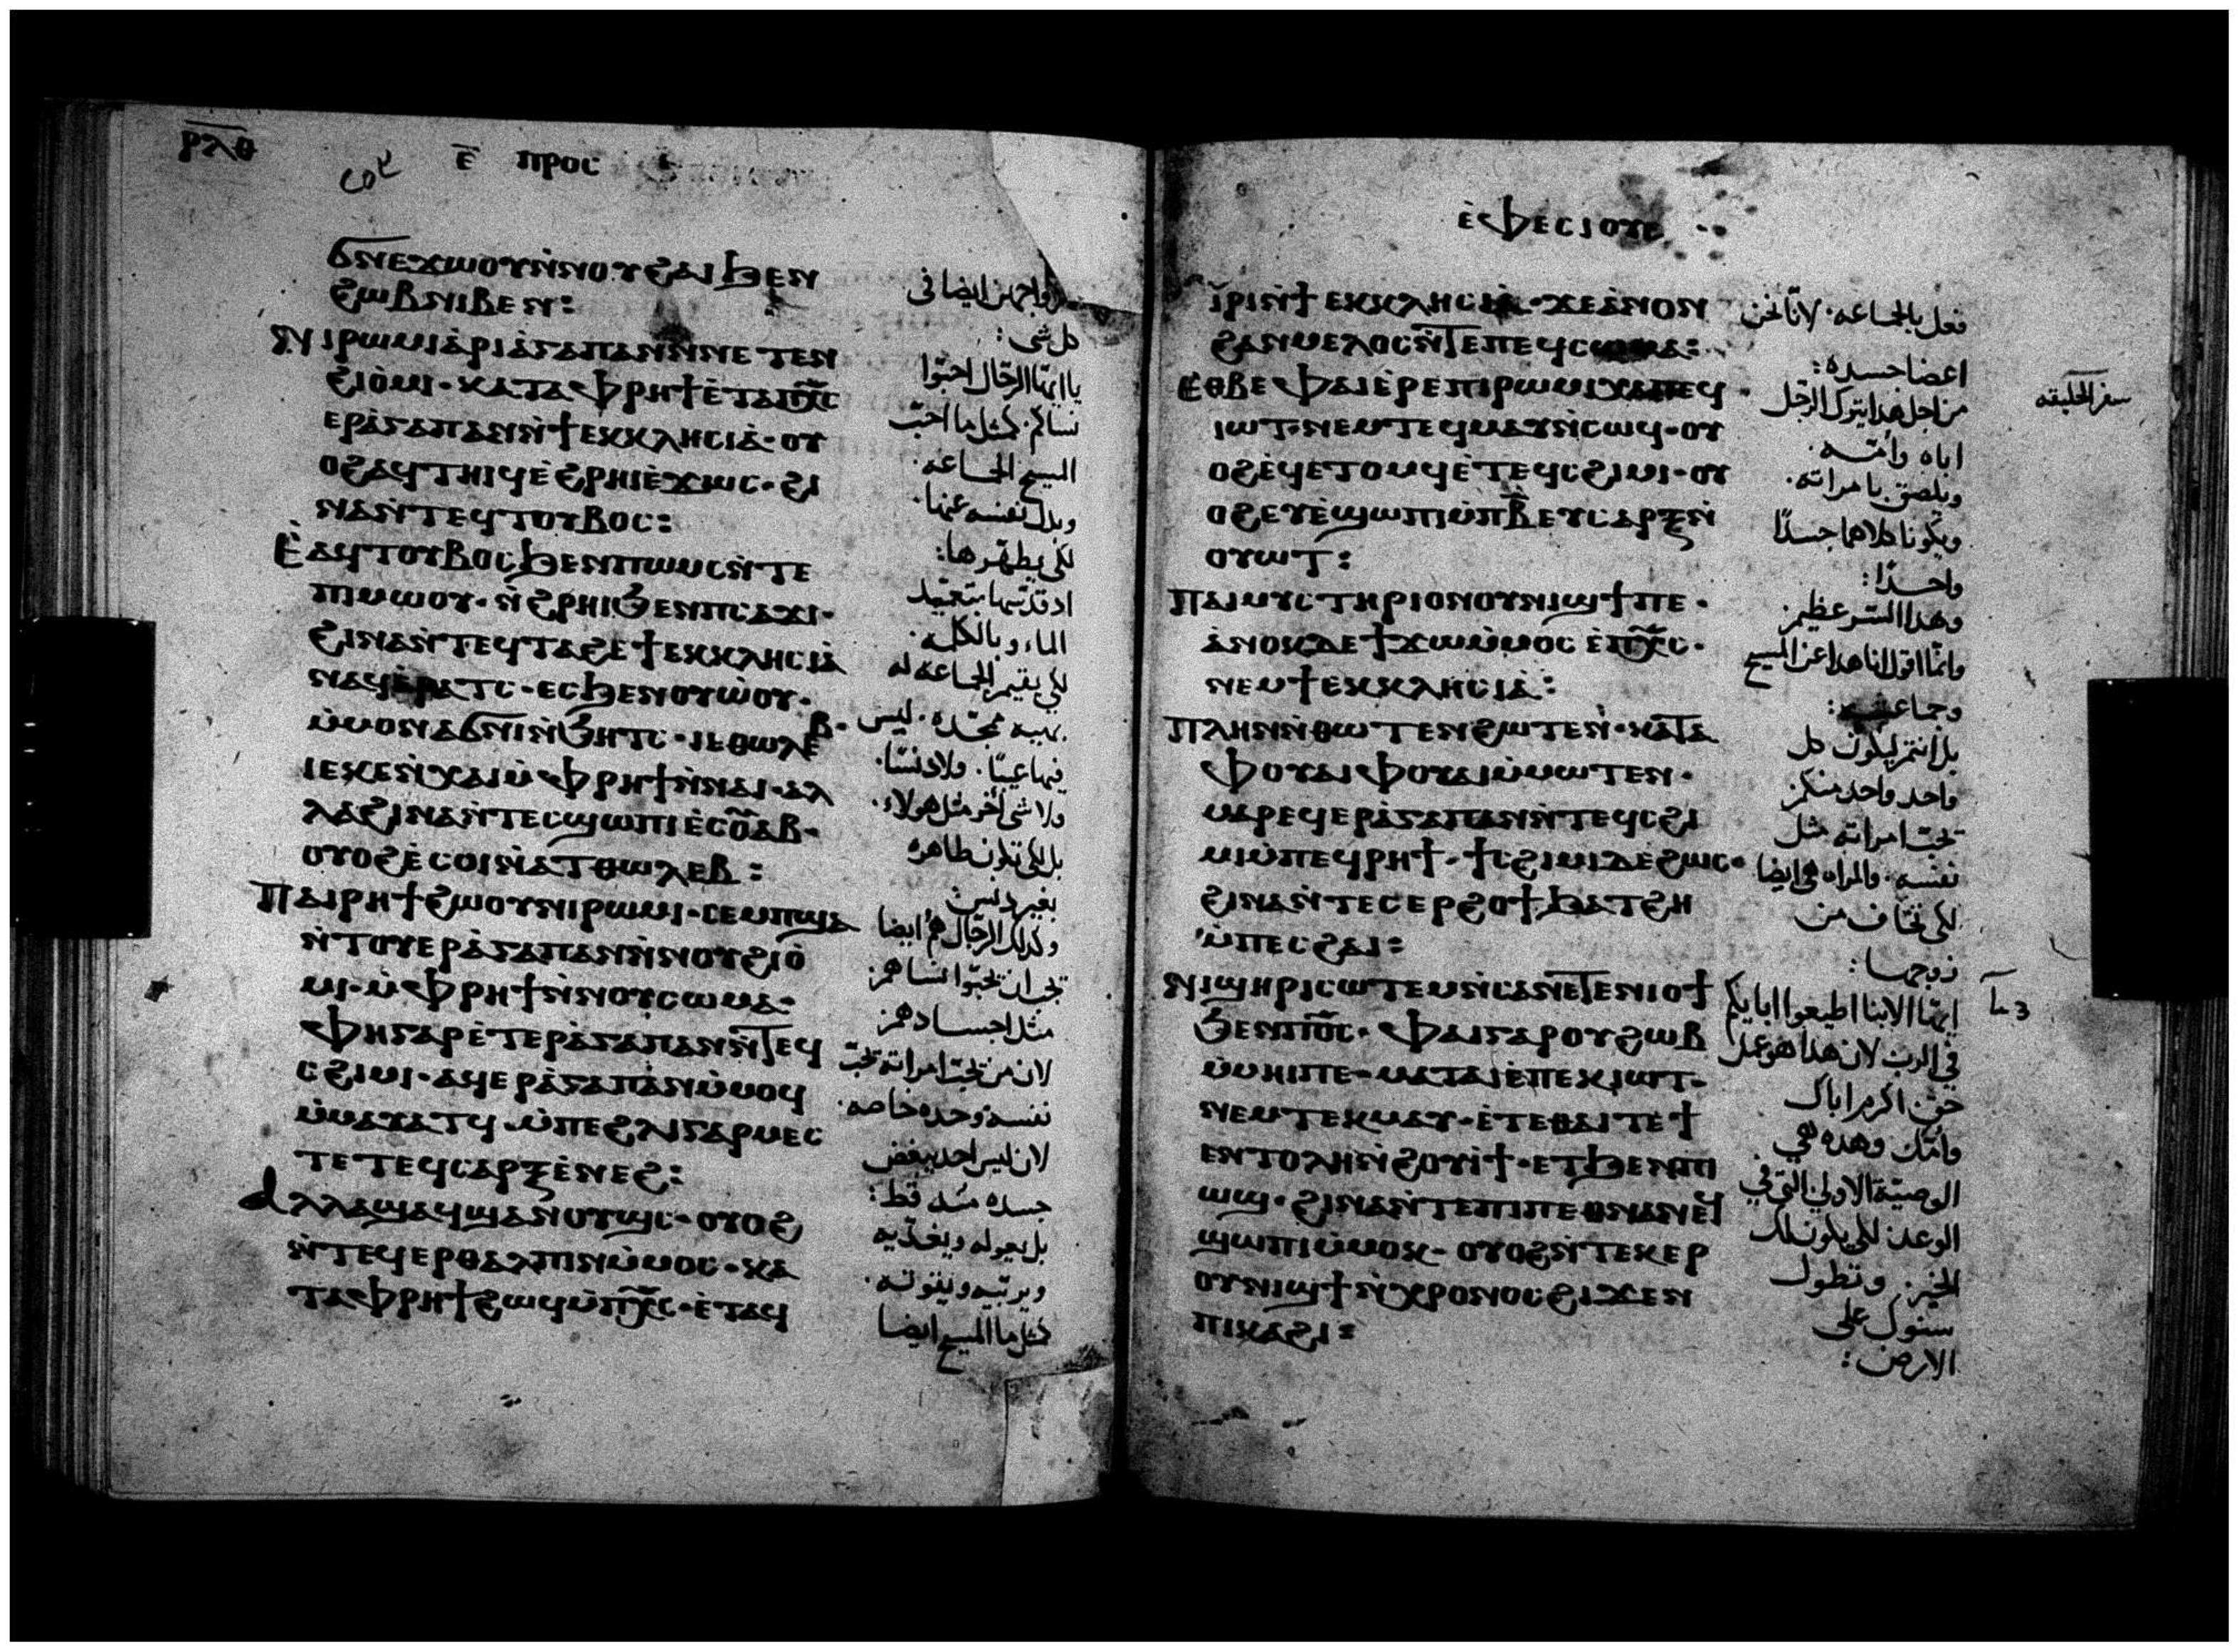 ⲣⲗⲑ
ⲉ̅ ⲡⲣⲟⲥ
ϭⲛⲉϫⲱⲟⲩⲛ̀ⲛⲟⲩϩⲁⲓϧⲉⲛ
ϩⲱⲃⲛⲓⲃⲉⲛ:
ⲛⲓⲣⲱⲙⲓⲁ̀ⲣⲓⲁ̀ⲅⲁⲡⲁⲛⲛ̀ⲛⲉⲧⲉⲛ
ϩⲓⲟ̀ⲙⲓ· ⲕⲁⲧⲁⲫⲣⲏϯⲉ̀ⲧⲁⲡⲭ̅ⲥ
ⲉⲣⲁ̀ⲅⲁⲡⲁⲛⲛ̀ϯⲉⲕⲕⲗⲏⲥⲓⲁ̀· ⲟⲩ
ⲟϩⲁϥⲧⲏⲓϥⲉ̀ϩⲣⲏⲓⲉ̀ϫⲱⲥ· ϩⲓ
ⲛⲁⲛ̀ⲧⲉϥⲧⲟⲩⲃⲟⲥ:
ⲉ̀ⲁϥⲧⲟⲩⲃⲟⲥϧⲉⲛⲡⲱⲙⲥⲛ̀ⲧⲉ
ⲡⲓⲙⲱⲟⲩ· ⲛ̀ϩⲣⲏⲓϧⲉⲛⲡⲥⲁϫⲓ·
ϩⲓⲛⲁⲛ̀ⲧⲉϥⲧⲁϩⲉϯⲉⲕⲕⲗⲏⲥⲓⲁ̀
ⲛⲁϥⲉ̀ⲣⲁⲧⲥ· ⲉⲥϧⲉⲛⲟⲩⲱ̀ⲟⲩ·
ⲙ̀ⲙⲟⲛⲁϭⲛⲓⲛ̀ϧⲏⲧⲥ· ⲓⲉⲑⲱⲗⲉⲃ·
ⲓⲉⲕⲉⲛ̀ⲭⲁⲓⲙ̀ⲫⲣⲏϯⲛ̀ⲛⲁⲓ· ⲁⲗ
ⲗⲁϩⲓⲛⲁⲛ̀ⲧⲉⲥϣⲱⲡⲓⲉ̀ⲥⲟ̅ⲁⲃ·
ⲟⲩⲟϩⲉ̀ⲥⲟⲓⲛ̀ⲁⲧⲑⲱⲗⲉⲃ:
ⲡⲁⲓⲣⲏϯϩⲱⲟⲩⲛⲓⲣⲱⲙⲓ· ⲥⲉⲙⲡϣⲁ
ⲛ̀ⲧⲟⲩⲉⲣⲁ̀ⲅⲁⲡⲁⲛⲛ̀ⲛⲟⲩϩⲓⲟ̀
ⲙⲓ· ⲙ̀ⲫⲣⲏϯⲛ̀ⲛⲟⲩⲥⲱⲙⲁ·
ⲫⲏⲅⲁⲣⲉ̀ⲧⲉⲣⲁ̀ⲅⲁⲡⲁⲛⲛ̀ⲧⲉϥ
ⲥϩⲓⲙⲓ· ⲁϥⲉⲣⲁ̀ⲅⲁⲡⲁⲛⲙ̀ⲙⲟϥ
ⲙ̀ⲙⲁⲩⲁⲧϥ· ⲙ̀ⲡⲉϩⲗⲓⲅⲁⲣⲙⲉⲥ
ⲧⲉⲧⲉϥⲥⲁⲣⲝⲉ̀ⲛⲉϩ:
ⲁⲗⲗⲁϣⲁϥϣⲁⲛⲟⲩϣⲥ· ⲟⲩⲟϩ
ⲛ̀ⲧⲉϥⲉⲣⲑⲁⲗⲡⲓⲛⲙ̀ⲙⲟⲥ· ⲕⲁ
ⲧⲁⲫⲣⲏϯϩⲱϥⲙ̀ⲡⲭ̅ⲥ· ⲉ̀ⲧⲁϥ
ازواجهن ايضا فى
كل شى:
يا ايها الرجال احبوا
نساكم· كمثل ما احب
المسيح الجماعه·
وبدل نفسه عنها·
لكى يطهرها:
اذ قدسها بتعميد
الماء وبالكلمه·
لكى يقيم الجماعه له
بهيه ممجده· ليس
فيها عيبًا· ولا دنسًا·
ولا شى اخر مثل هولاء·
بل لكى تكون طاهره
بغير دنس
وكذلك الرجال هم ايضا
يجب ان يحبوا نساهم
مثل اجسادهم
لان من يحب امراته يحب
نفسه وحده خاصه·
لان ليس احد يبغض
جسده منه قط:
بل يعوله ويغذيه
ويربيه ويقوته·
كمثل ما المسيح ايضا
ⲉ̀ⲫⲉⲥⲓⲟⲩⲥ
ⲓ̀ⲣⲓⲛ̀ϯⲉⲕⲕⲗⲏⲥⲓⲁ̀· ϫⲉⲁ̀ⲛⲟⲛ
ϩⲁⲛⲙⲉⲗⲟⲥⲛ̀ⲧⲉⲡⲉϥⲥⲱⲙⲁ:
ⲉⲑⲃⲉⲫⲁⲓⲉ̀ⲣⲉⲡⲓⲣⲱⲙⲓⲭⲁⲡⲉϥ
ⲓⲱⲧ· ⲛⲉⲙⲧⲉϥⲙⲁⲩⲛ̀ⲥⲱϥ· ⲟⲩ
ⲟϩⲉ̀ϥⲉ̀ⲧⲟⲙϥⲉ̀ⲧⲉϥⲥϩⲓⲙⲓ· ⲟⲩ
ⲟϩⲉⲩⲉ̀ϣⲱⲡⲓⲙ̀ⲡⲃ̅ⲉⲩⲥⲁⲣⲝⲛ̀
ⲟⲩⲱⲧ:
ⲡⲁⲓⲙⲩⲥⲧⲏⲣⲓⲟⲛⲟⲩⲛⲓϣϯⲡⲉ·
ⲁ̀ⲛⲟⲕⲇⲉϯϫⲱⲙ̀ⲙⲟⲥⲉ̀ⲡⲭ̅ⲥ·
ⲛⲉⲙϯⲉⲕⲕⲗⲏⲥⲓⲁ̀:
ⲡⲗⲏⲛⲛ̀ⲑⲱⲧⲉⲛϩⲱⲧⲉⲛ· ⲕⲁⲧⲁ
ⲫⲟⲩⲁⲓⲫⲟⲩⲁⲓⲙ̀ⲙⲱⲧⲉⲛ·
ⲙⲁⲣⲉϥⲉⲣⲁ̀ⲅⲁⲡⲁⲛⲛ̀ⲧⲉϥⲥϩⲓ
ⲙⲓⲙ̀ⲡⲉϥⲣⲏϯ· ϯⲥϩⲓⲙⲓⲇⲉϩⲱⲥ·
ϩⲓⲛⲁⲛ̀ⲧⲉⲥⲉⲣϩⲟϯϧⲁⲧϩⲏ
ⲙ̀ⲡⲉⲥϩⲁⲓ:
ⲛⲓϣⲏⲣⲓⲥⲱⲧⲉⲙⲛ̀ⲥⲁⲛⲉⲧⲉⲛⲓⲟϯ
ϧⲉⲛⲡⲟ̅ⲥ· ⲫⲁⲓⲅⲁⲣⲟⲩϩⲱⲃ
ⲙ̀ⲙⲏⲓⲡⲉ· ⲙⲁⲧⲁⲓⲉ̀ⲡⲉⲕⲓⲱⲧ·
ⲛⲉⲙⲧⲉⲕⲙⲁⲩ· ⲉ̀ⲧⲉⲑⲁⲓⲧⲉϯ
ⲉⲛⲧⲟⲗⲏⲛ̀ϩⲟⲩⲓ̀ϯ· ⲉⲧϧⲉⲛⲡⲓ
ⲱϣ· ϩⲓⲛⲁⲛ̀ⲧⲉⲡⲓⲡⲉⲑⲛⲁⲛⲉϥ
ϣⲱⲡⲓⲙ̀ⲙⲟⲕ· ⲟⲩⲟϩⲛ̀ⲧⲉⲕⲉⲣ
ⲟⲩⲛⲓϣϯⲛ̀ⲭⲣⲟⲛⲟⲥϩⲓϫⲉⲛ
ⲡⲓⲕⲁϩⲓ:
فعل بالجماعه· لانا نحن
اعضا جسده:
من اجل هذا يترك الرجل
اباه وامه·
ويلصق بامراته·
ويكونا كلاهما جسدًا
واحدًا:
وهذا السر عظيم
وانما اقول انا هذا عن المسيح
وجماعته:
بل انتم ليكون كل
واحد واحد منكم
يحب امراته مثل
نفسه· والمراه هى ايضا
لكى تخاف من
زوجها:
ايها الابنا اطيعوا ابايكم
فى الرب لان هذا هو عدل
حق· اكرم اباك
وامك وهذه هي
الوصية الاولى التى فى
الوعد· لكى يكون لك
الخير· وتطول
سنوك على
الارض:
سفر الخليقه